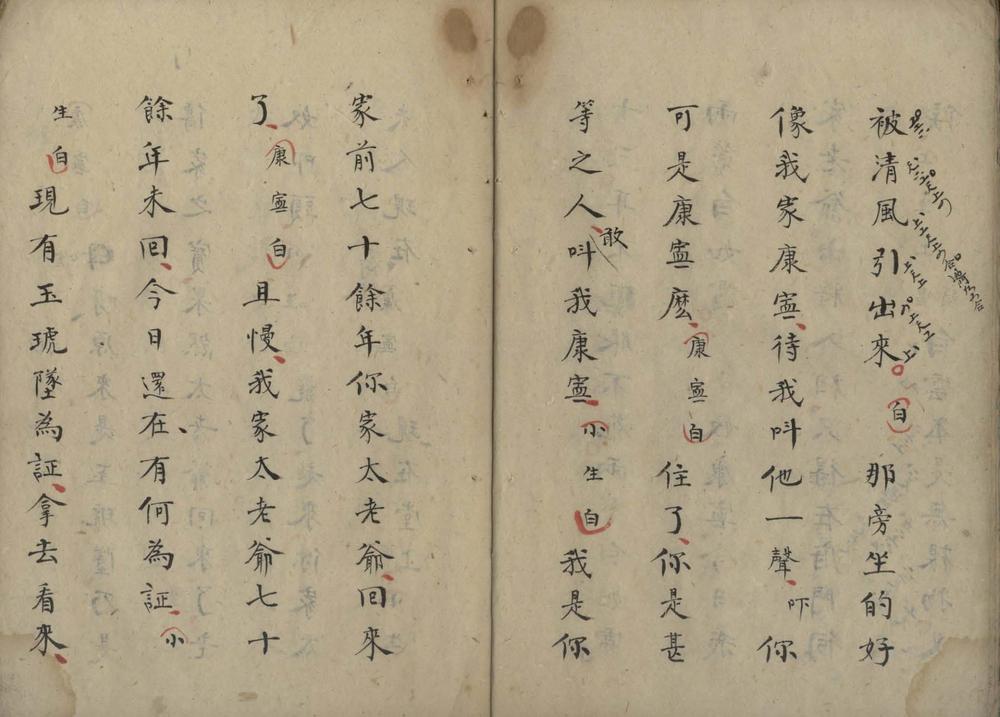 被清風引出來白那旁坐的好
像我家康寍待我叫他一聲吓你
可是康寍麽康寍白住了你是甚
等之人敢叫我康寍小生白我是你
家前七十餘年你家太老爺回來
了康寍白且慢我家太老爺七十
餘年未回今日還在有何為証小
生白現有玉琥墜為証拿去看來